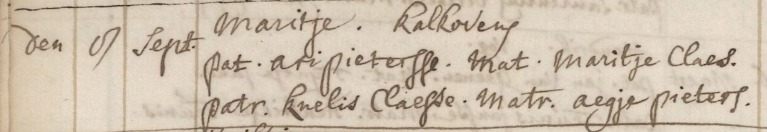 Maritje. Kalkovens
den Sept. pat. ari pietersse. Mat. Maritje Claes.
patr. knelis Claesse. Matr. aegje pieters.